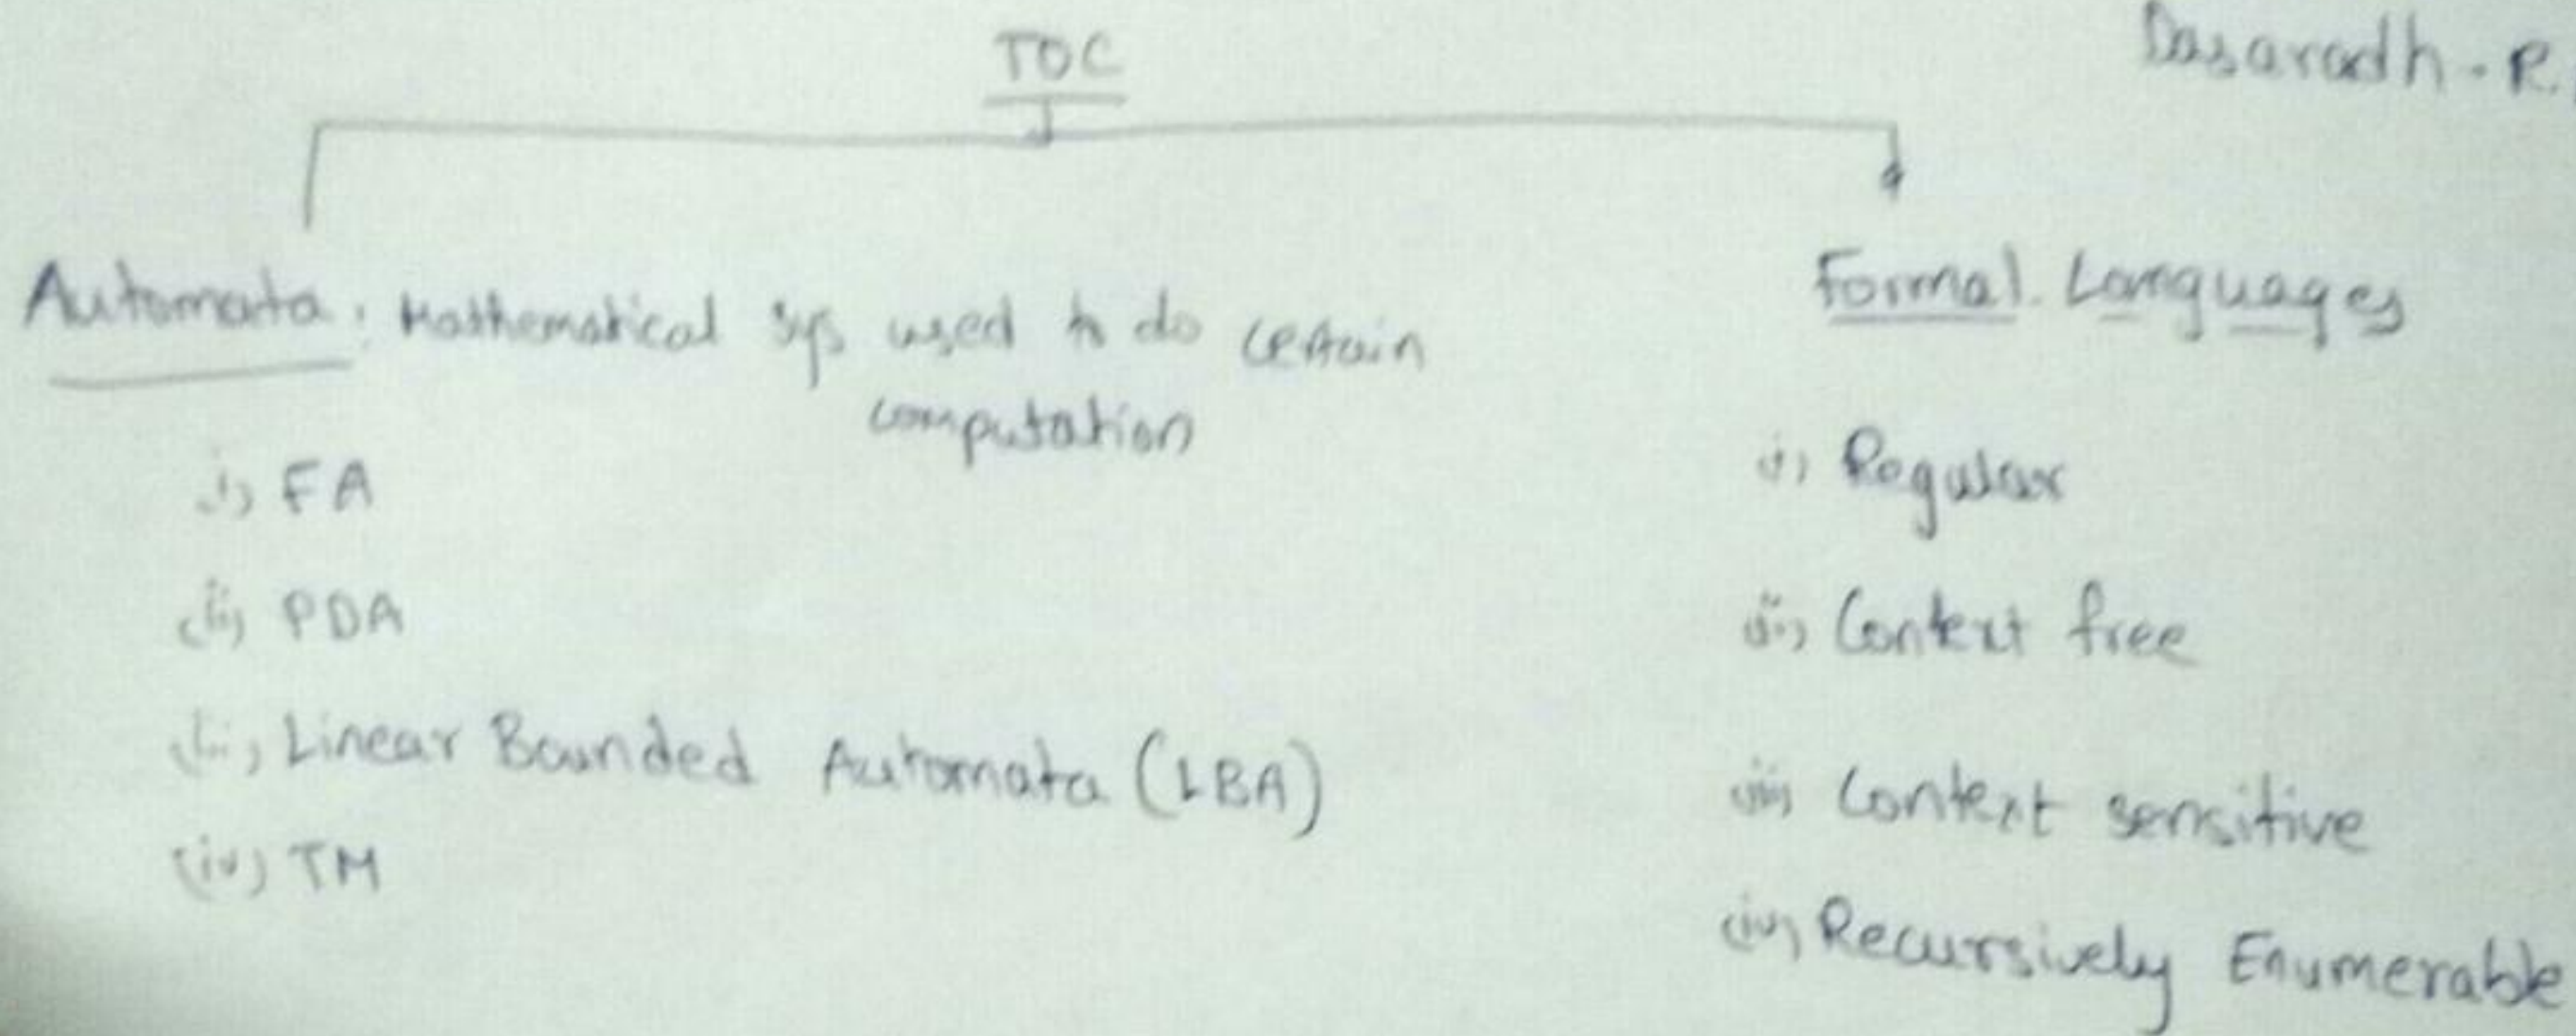 TOC
Dasaradh . R.
Automata : Mathematical sys used to do certain
computation
i) FA
(ii) PDA
(iii) Linear Bounded Automata (LBA)
(iv) TM
Formal Languages
i) Regular
ii) Context free
iii) Context sensitive
(iv) Recursively Enumerable